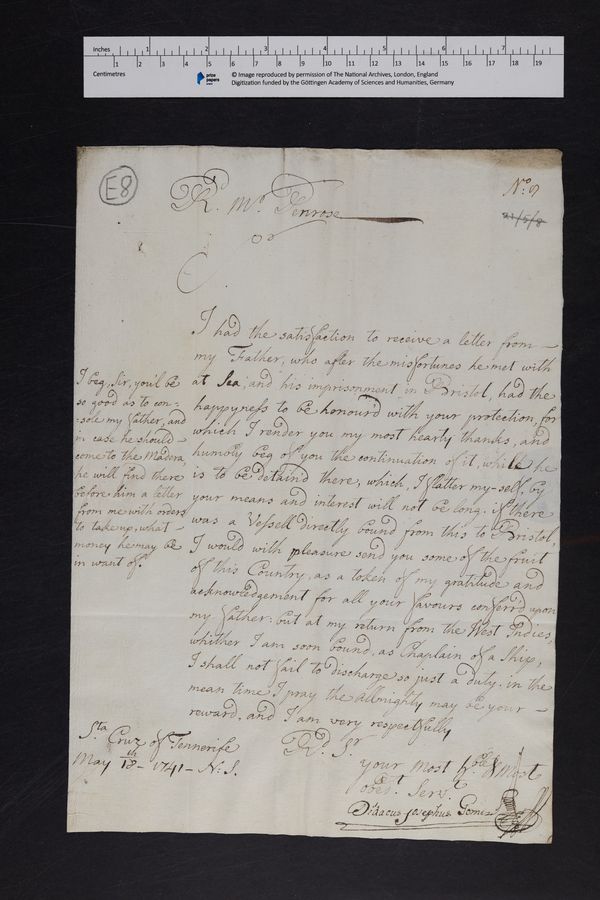 Inches 1 2 3 4 5 6 7
1 2 3 4 5 6 7 8 9 10 11 12 13 14 15 16 17 18 19
Centimetres
prize papers
© Image reproduced by permission of The National Archives, London, England
Digitization funded by the Göttingen Academy of Sciences and Humanities, Germany
E8
Nº 9
21/5/8
Rd. Mr. Penrose
I had the satisfaction to receive a letter from
my Father, who after the misfortunes he met with
at Sea, and his imprisonment in Bristol, had the
happyness to be honour'd with your protection, for
which I render you my most hearty thanks, and
humbly beg of you the continuation of it, while he
is to be detain'd there, which, I flatter my-self, by
your means and interest will not be long. if there
was a Vessell directly bound from this to Bristol,
I would with pleasure send you some of the fruit
of this Country, as a token of my gratitude and
acknowledgement for all your favours conferr'd upon
my father: but at my return from the West Indies,
whither I am soon bound, as Chaplain of a Ship,
I shall not fail to discharge so just a duty. in the
mean time I pray the Allmighty may be your
reward, and I am very respectfully
Rd. Sr.
your most hble & most
obedt. Servt.
Didacus Josephus Gomez
I beg, Sir, you'l be
so good as to con-
-sole my father, and
in case he should
come to the Madera,
he will find there
before him a letter
from me with orders
to take up, what
money he may be
in want of.
Sta. Cruz of Tennerife
May 18th - 1741 - N: S.